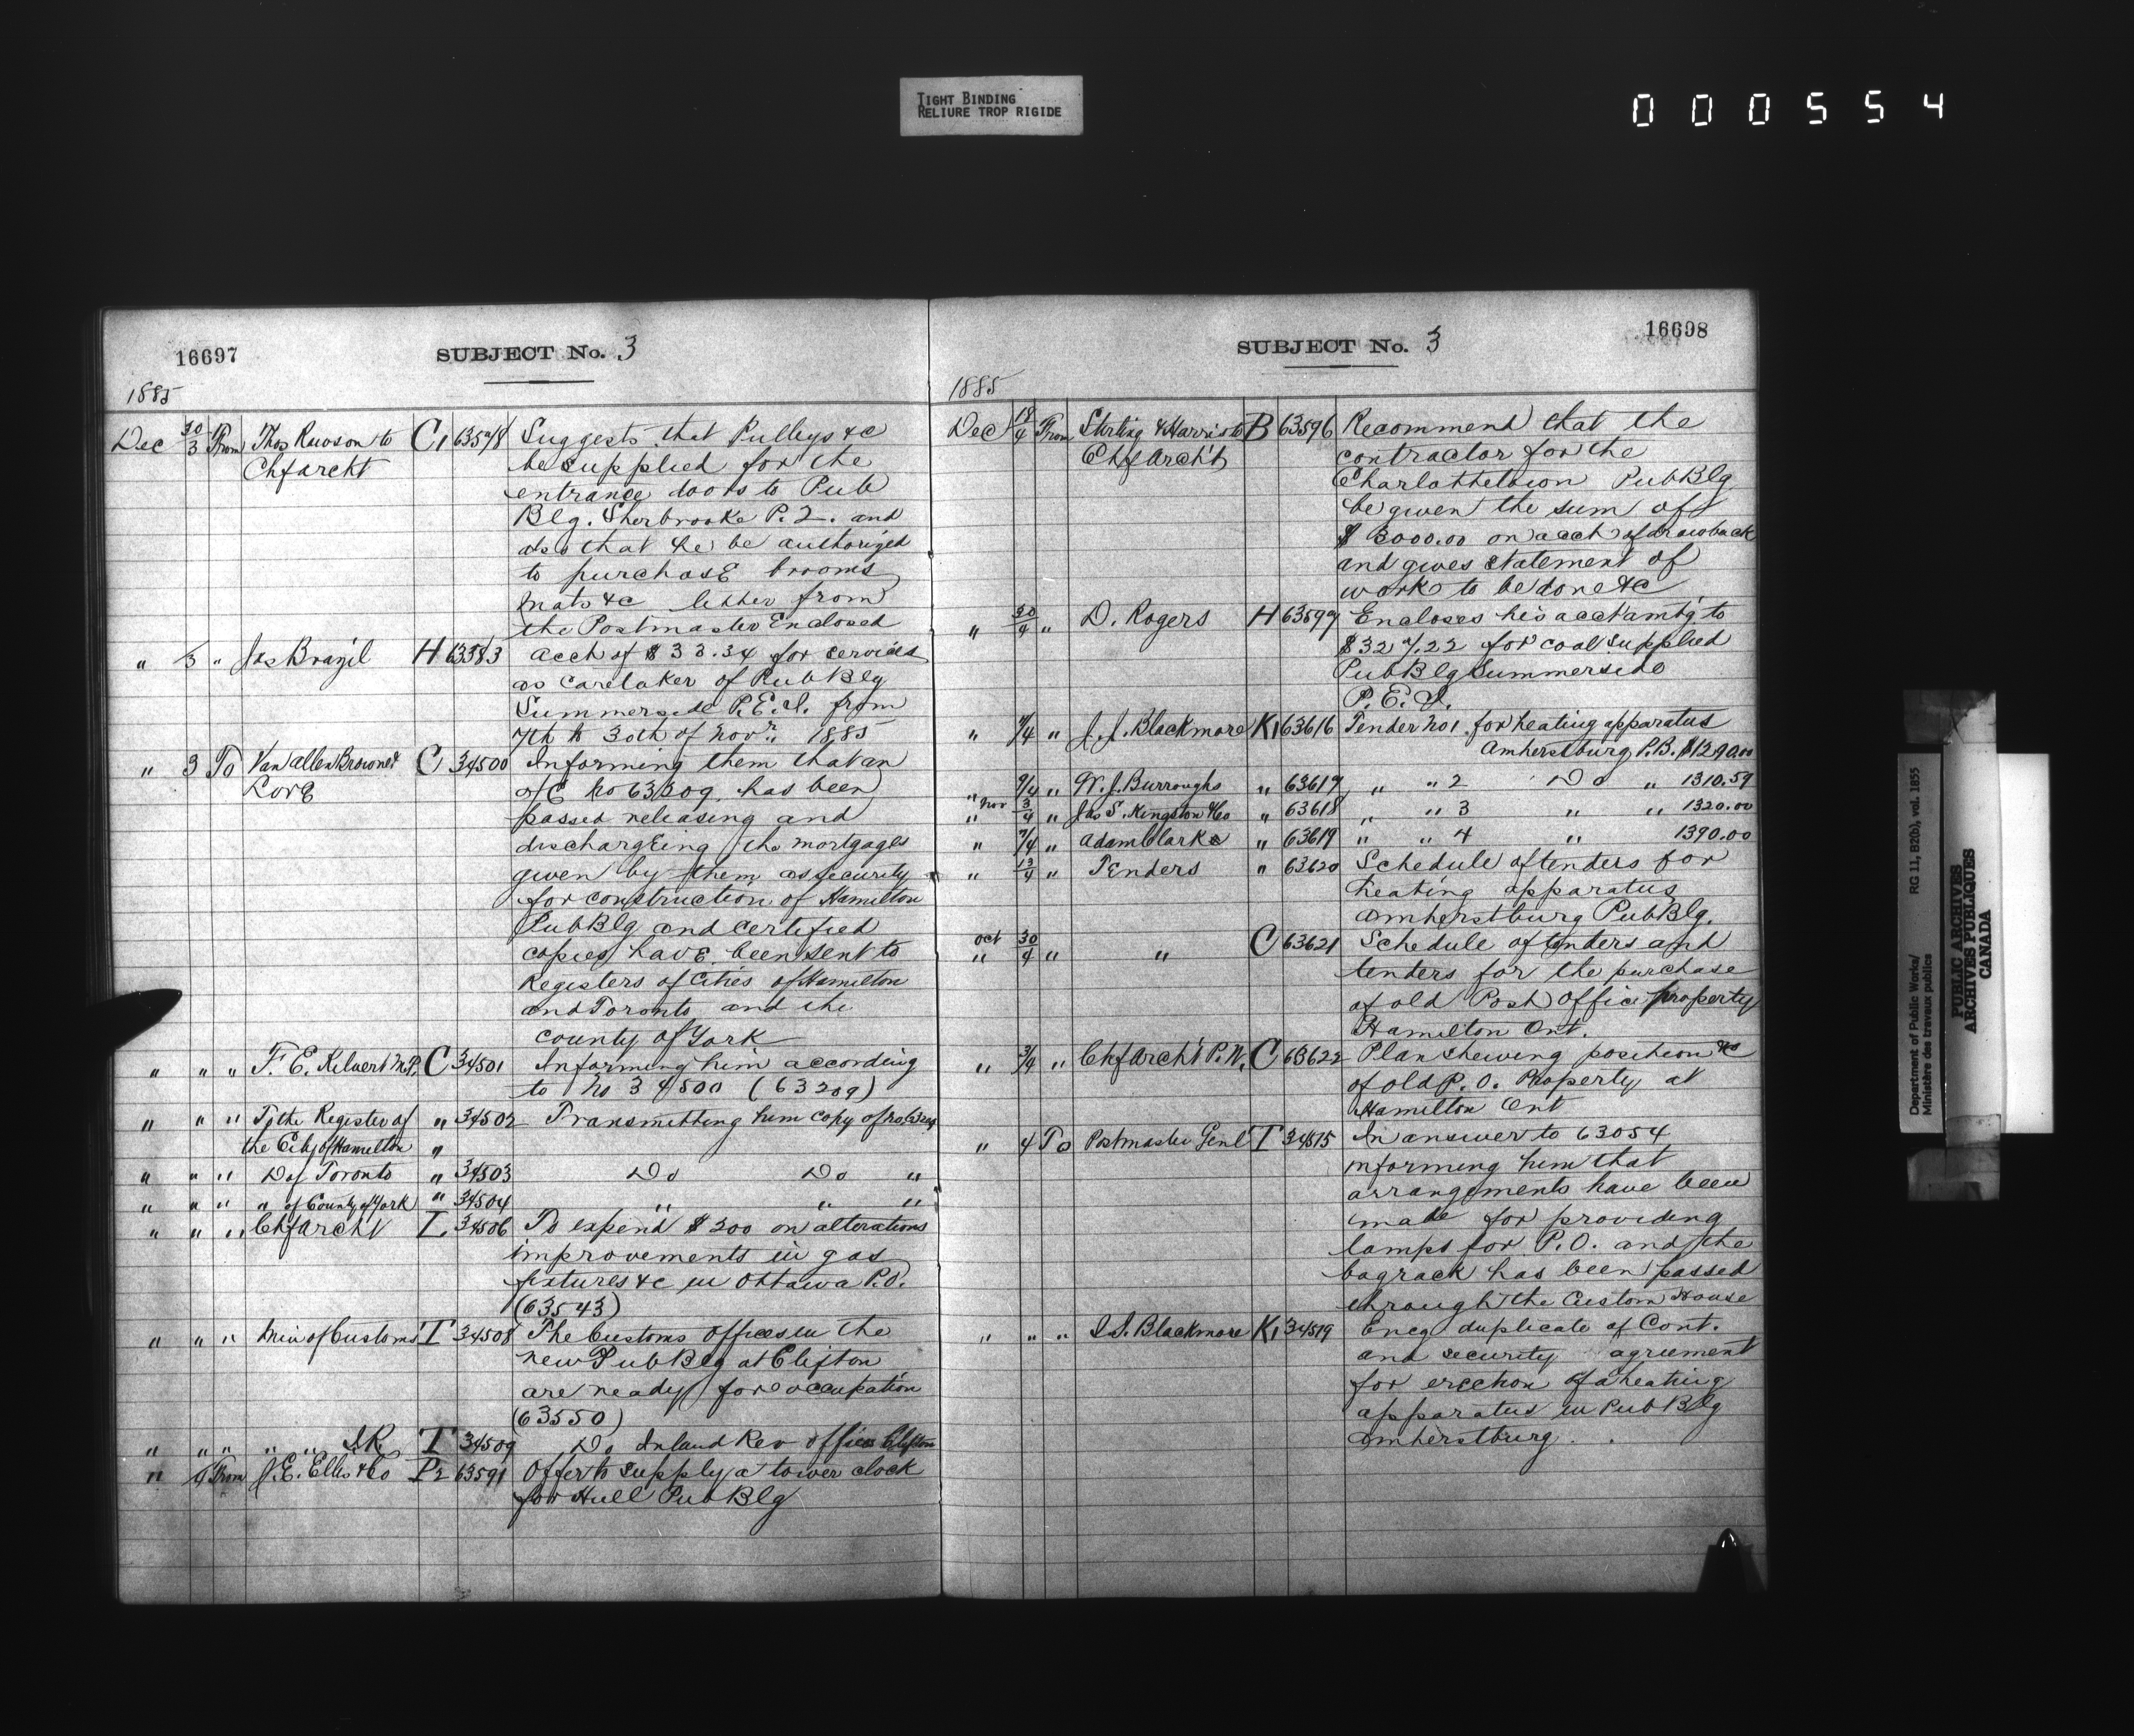 TIGHT BINDING
RELIURE TROP RIGIDE
000554
16697 SUBJECT No. 3
1885
Dec 30/3 From Thos Rawson to C1 63578 Suggests that Pulleys &c
Chfarcht be supplied for the
entrance doors to Pub
Blg. Sherbrooke P.Q. and
also that he be authorized
to purchase brooms
mats &c letter from
the Postmaster Enclosed
" 3 " Jas Brazil H 63583 acct of $33.34 for services
as caretaker of Pub Blg
Summerside P.E.I. from
7th to 30th of Novr. 1885
" 3 To Van allen Browne & C 34500 Informing them that an
Love o/C No 63209 has been
passed releasing and
dischargEing the mortgages
given by them as security
for construction of Hamilton
Pub Blg and certified
copies have been sent to
Registers of Cities of Hamilton
and Toronto and the
county of York
" " " F. E. Kilvert M.P. C 34501 Informing him according
to No 34500 (63209)
" " " To the Register of " 34502 Transmitting him copy of no 63209
the City of Hamilton "
" " " Do of Toronto " 34503 Do Do "
" " " " of County of York " 34504 " " "
" " " Chfarcht L. 34506 To expend $200 on alterations
improvements in gas
fixtures &c in Ottawa P.O.
(63543)
" " " Min of Customs T 34508 The Customs Offices in the
new Pub Blg at Clifton
are ready for occupation
(63550)
" " " " " I.R. T 34509 Do Inland Rev office Clifton
" 4 From J.E. Ellis & Co P2 63591 Offer to supply a tower clock
for Hull Pub Blg
SUBJECT No. 3 16698
1885
Dec 18/4 From Stirling & Harris to B 63596 Recommend that the
Chf Arch't contractor for the
Charlottetown Pub Blg
be given the sum of
$3000.00 on acct of drawback
and gives statement of
work to be done &c
" 30/4 " D. Rogers H 63597 Encloses his acct amt'g to
$327.22 for coal supplied
Pub Blg Summerside
P.E.I.
" 7/4 " J. J. Blackmore K1 63616 Tender No 1. for heating apparatus
Amherstburg P.B. $1290.00
" 9/4 " W. J. Burroughs " 63617 " " 2 Do " 1310.59
" Nov 3/4 " Jas S. Kingston & Co " 63618 " " 3 " " 1320.00
" 7/4 " Adam Clark " 63619 " " 4 " 1390.00
" 13/4 " Tenders " 63620 Schedule of tenders for
heating apparatus
Amherstburg Pub Blg.
Oct 30/4 " " C 63621 Schedule of tenders and
tenders for the purchase
of old Post Office property
Hamilton Ont.
" 3/4 " Chf Arch't P.W. C 63622 Plan shewing position &c
of old P.O. Property at
Hamilton Ont
" 4 To Postmaster Genl T 34515 In answer to 63054
informing him that
arrangements have been
made for providing
lamps for P.O. and the
bagrack has been passed
through the Custom House
" " " J.J. Blackmore K1 34519 Encg duplicate of Cont.
and security agreement
for erection of a heating
apparatus in Pub Blg
Amherstburg.
Department of Public Works/ RG 11, B2(b), vol. 1855
Ministère des travaux publics
PUBLIC ARCHIVES
ARCHIVES PUBLIQUES
CANADA